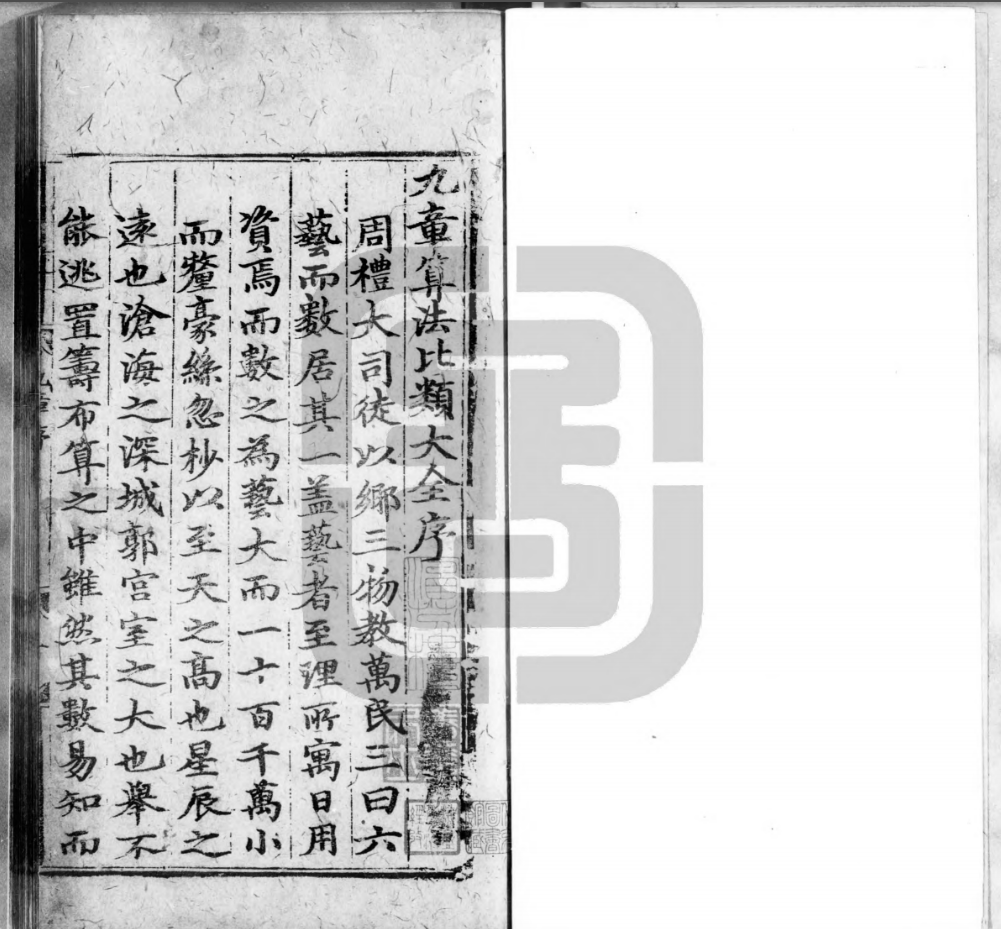 九章算法比類大全序
周禮大司徒以鄉三物教萬民三曰六
藝而數居其一盖藝者至理所寓日用
資焉而數之為藝大而一十百千萬小
而釐豪絲忽杪以至天之高也星辰之
遠也滄海之深城郭宫室之大也舉不
能逃置籌布算之中雖然其數易知而